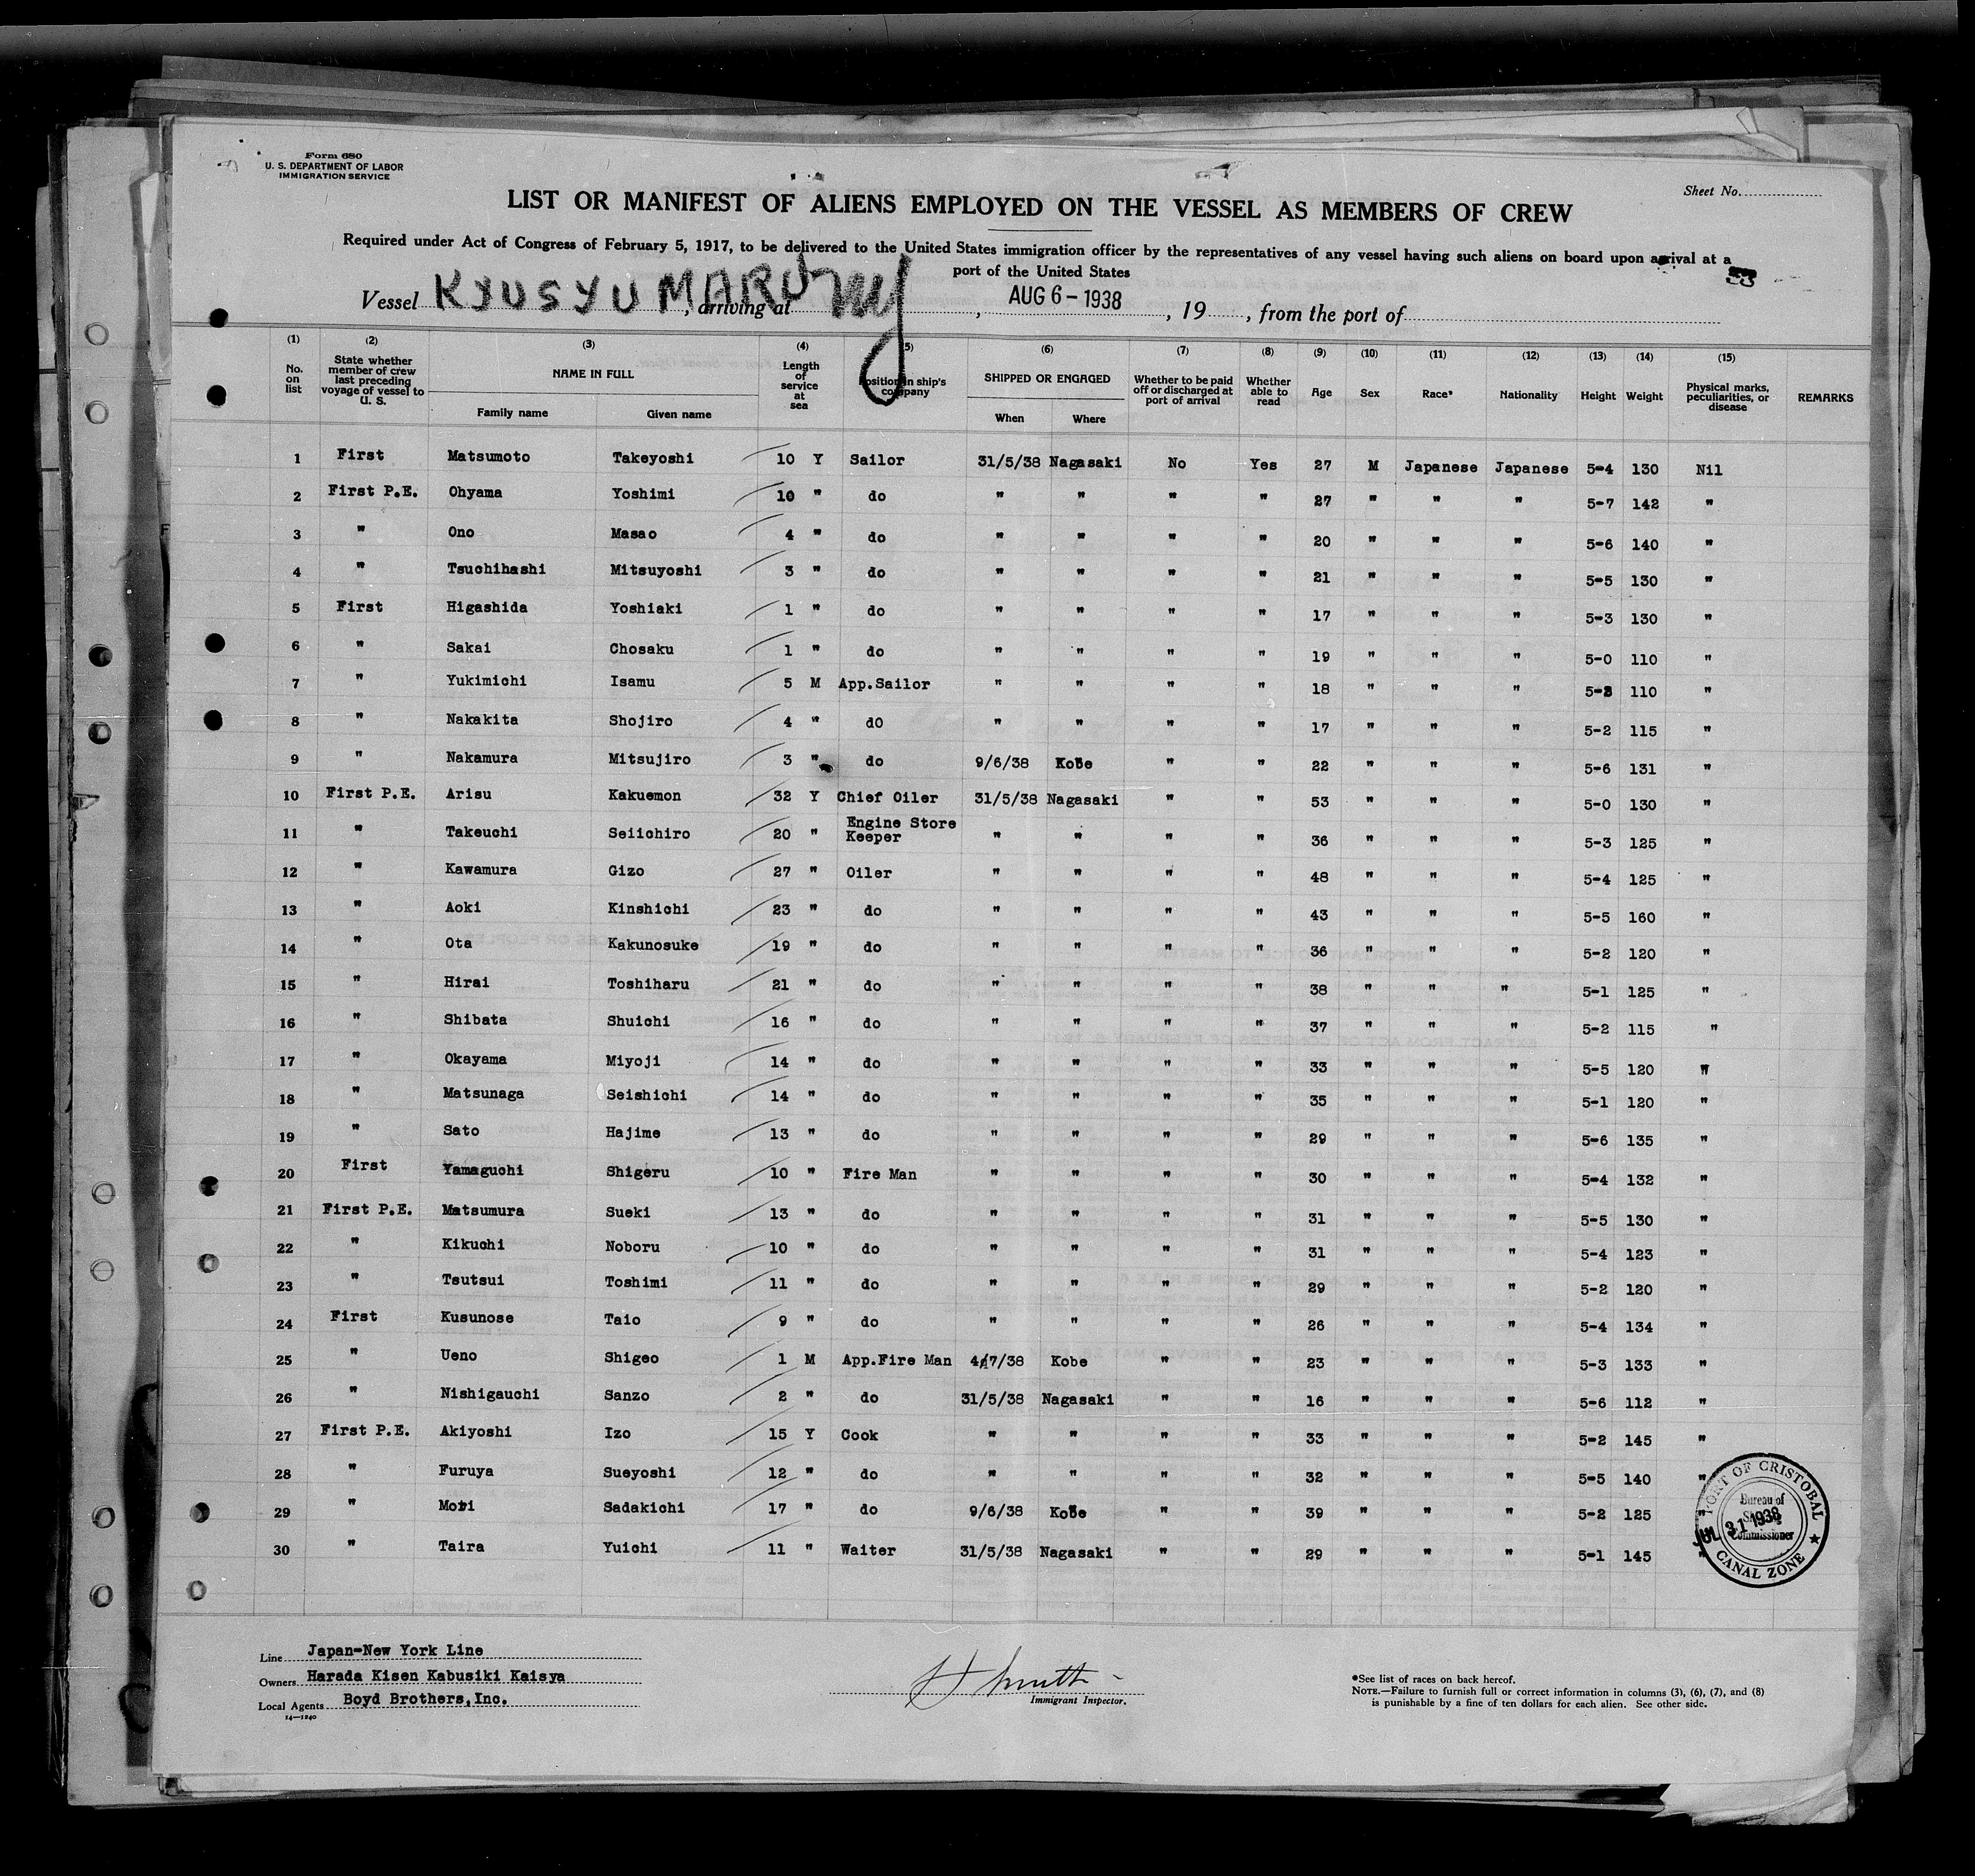 Form 680
U. S. DEPARTMENT OF LABOR
IMMIGRATION SERVICE
Sheet No.
LIST OR MANIFEST OF ALIENS EMPLOYED ON THE VESSEL AS MEMBERS OF CREW
Required under Act of Congress of February 5, 1917, to be delivered to the United States immigration officer by the representatives of any vessel having such aliens on board upon arrival at a
port of the United States
Vessel KYUSYU MARU, arriving at ny, AUG 6 - 1938, 19, from the port of
(1) (2) (3) (4) (5) (6) (7) (8) (9) (10) (11) (12) (13) (14) (15)
No. on list State whether member of crew last preceding voyage of vessel to U. S. NAME IN FULL Family name Given name Length of service at sea Position in ship's company SHIPPED OR ENGAGED When Where Whether to be paid off or discharged at port of arrival Whether able to read Age Sex Race* Nationality Height Weight Physical marks, peculiarities, or disease REMARKS
1 First Matsumoto Takeyoshi 10 Y Sailor 31/5/38 Nagasaki No Yes 27 M Japanese Japanese 5-4 130 Nil
2 First P.E. Ohyama Yoshimi 10 " do " " " " 27 " " " 5-7 142 "
3 " Ono Masao 4 " do " " " " 20 " " " 5-6 140 "
4 " Tsuchihashi Mitsuyoshi 3 " do " " " " 21 " " " 5-5 130 "
5 First Higashida Yoshiaki 1 " do " " " " 17 " " " 5-3 130 "
6 " Sakai Chosaku 1 " do " " " " 19 " " " 5-0 110 "
7 " Yukimichi Isamu 5 M App.Sailor " " " " 18 " " " 110 "
8 " Nakakita Shojiro 4 " do " " " " 17 " " " 5-2 115 "
9 " Nakamura Mitsujiro 3 " do 9/6/38 Kobe " " 22 " " " 5-6 131 "
10 First P.E. Arisu Kakuemon 32 Y Chief Oiler 31/5/38 Nagasaki " " 53 " " " 5-0 130 "
11 " Takeuchi Seiichiro 20 " Engine Store Keeper " " " " 36 " " " 5-3 125 "
12 " Kawamura Gizo 27 " Oiler " " " " 48 " " " 5-4 125 "
13 " Aoki Kinshichi 23 " do " " " " 43 " " " 5-5 160 "
14 " Ota Kakunosuke 19 " do " " " " 36 " " " 5-2 120 "
15 " Hirai Toshiharu 21 " do " " " " 38 " " " 5-1 125 "
16 " Shibata Shuichi 16 " do " " " " 37 " " " 5-2 115 "
17 " Okayama Miyoji 14 " do " " " " 33 " " " 5-5 120 "
18 " Matsunaga Seishichi 14 " do " " " " 35 " " " 5-1 120 "
19 " Sato Hajime 13 " do " " " " 29 " " " 5-6 135 "
20 First Yamaguchi Shigeru 10 " Fire Man " " " " 30 " " " 5-4 132 "
21 First P.E. Matsumura Sueki 13 " do " " " " 31 " " " 5-5 130 "
22 " Kikuchi Noboru 10 " do " " " " 31 " " " 5-4 123 "
23 " Tsutsui Toshimi 11 " do " " " " 29 " " " 5-2 120 "
24 First Kusunose Taio 9 " do " " " " 26 " " " 5-4 134 "
25 " Ueno Shigeo 1 M App.Fire Man 4/7/38 Kobe " " 23 " " " 5-3 133 "
26 " Nishigauchi Sanzo 2 " do 31/5/38 Nagasaki " " 16 " " " 5-6 112 "
27 First P.E. Akiyoshi Izo 15 Y Cook " " " " 33 " " " 5-2 145 "
28 " Furuya Sueyoshi 12 " do " " " " 32 " " " 5-5 140 "
29 " Mori Sadakichi 17 " do 9/6/38 Kobe " " 39 " " " 5-2 125 "
30 " Taira Yuichi 11 " Waiter 31/5/38 Nagasaki " " 29 " " " 5-1 145 "
PORT OF CRISTOBAL
Bureau of
JUL 31 1938
Commissioner
CANAL ZONE
Line Japan-New York Line
Owners Harada Kisen Kabusiki Kaisya
Local Agents Boyd Brothers,Inc.
14-1240
Immigrant Inspector.
*See list of races on back hereof.
NOTE.—Failure to furnish full or correct information in columns (3), (6), (7), and (8)
is punishable by a fine of ten dollars for each alien. See other side.